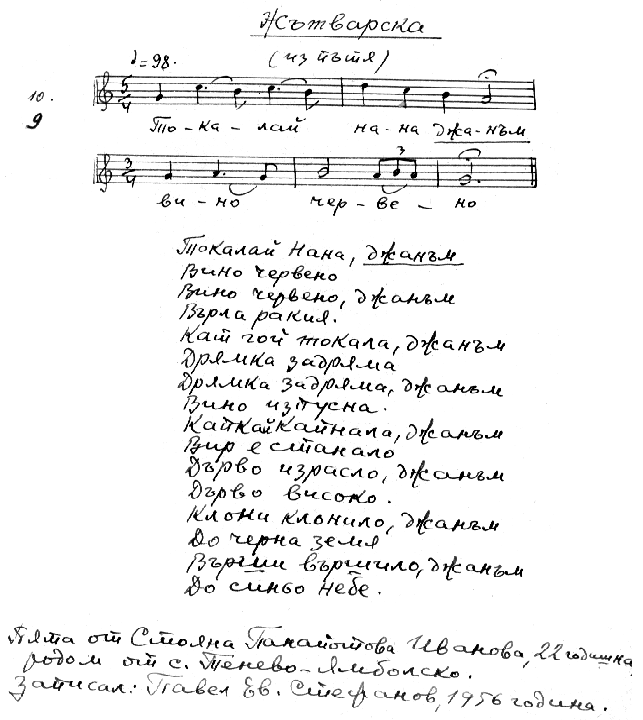 Жътварска
(из пътя)
♩=98.
10.
9
5/4
То-ка-лай на-на джа-нъм
3/4
3
ви-но чер-ве-но
Токалай Нана, джанъм
Вино червено
Вино червено, джанъм
Върла ракия.
Кат гой токала, джанъм
Дрямка задряма
Дрямка задряма, джанъм
Вино изпусна.
Кайнала, джанъм
Вир е станало
Дърво израсло, джанъм
Дърво високо.
Клони клонило, джанъм
До черна земя
Върши вършило, джанъм
До синьо небе.
Пята от Стояна Панайотова Иванова, 22 годишна,
родом от с. Тенево-Ямболско.
Записал: Павел Ев. Стефанов, 1956 година.